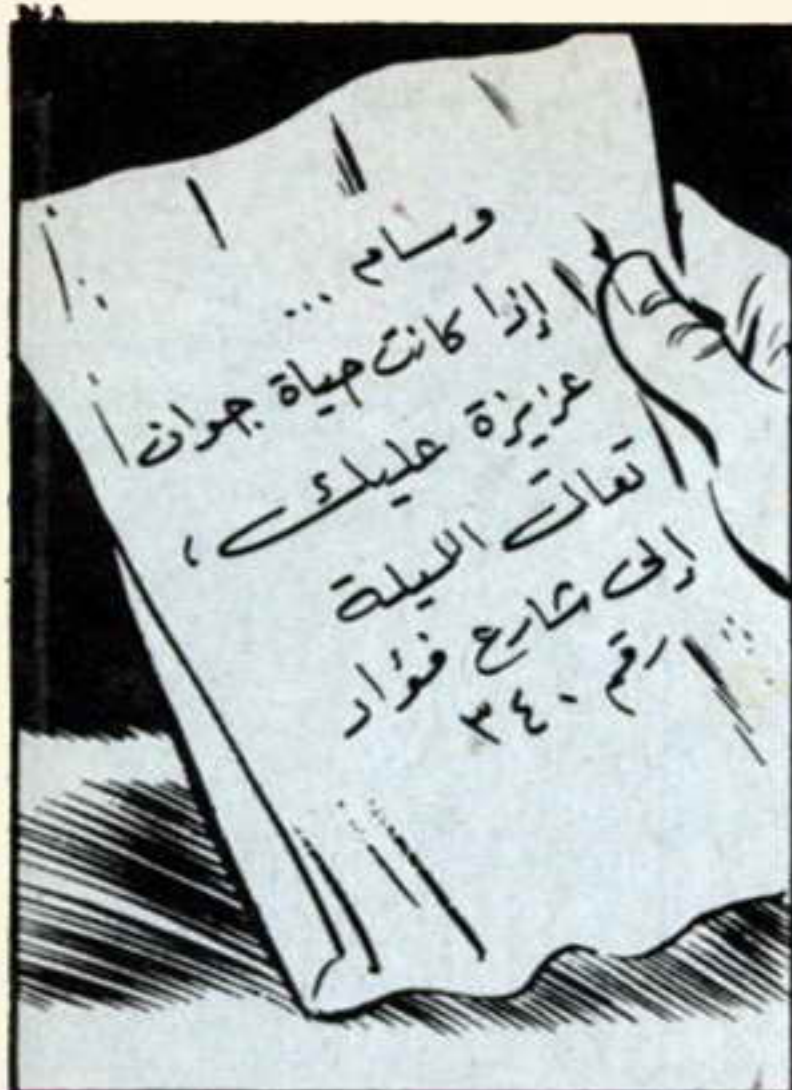 وسام ...
إذا كانت حياة جوان
عزيزة عليك،
تعالى الليلة
إلى شارع فؤاد
رقم ٣٤٠